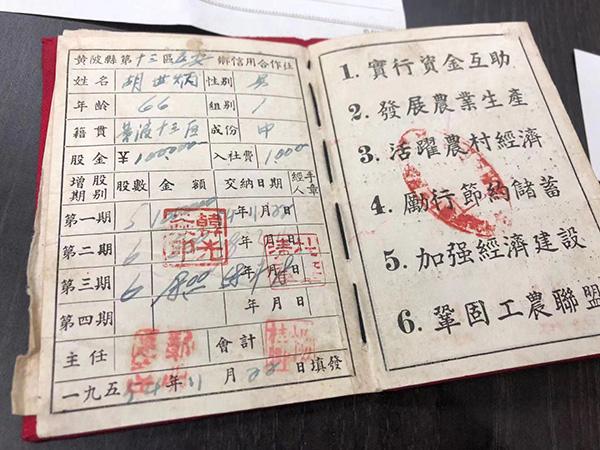 黃陂縣第十三區五安鄉信用合作社
姓名 胡世炳 性別 男
年齡 66 組別 1
籍貫 黃陂十三區 成份 中
股金 ¥ 入社費 1000
增股期別 股數 金額 交納日期 經手人章
第一期 5 年月日
第二期 6 年月日
第三期 6 1800 年月日
第四期 年月日
主任 會計
一九五54年11月22日填發
1. 實行資金互助
2. 發展農業生產
3. 活躍農村經濟
4. 勵行節約儲蓄
5. 加强經濟建設
6. 鞏固工農聯盟